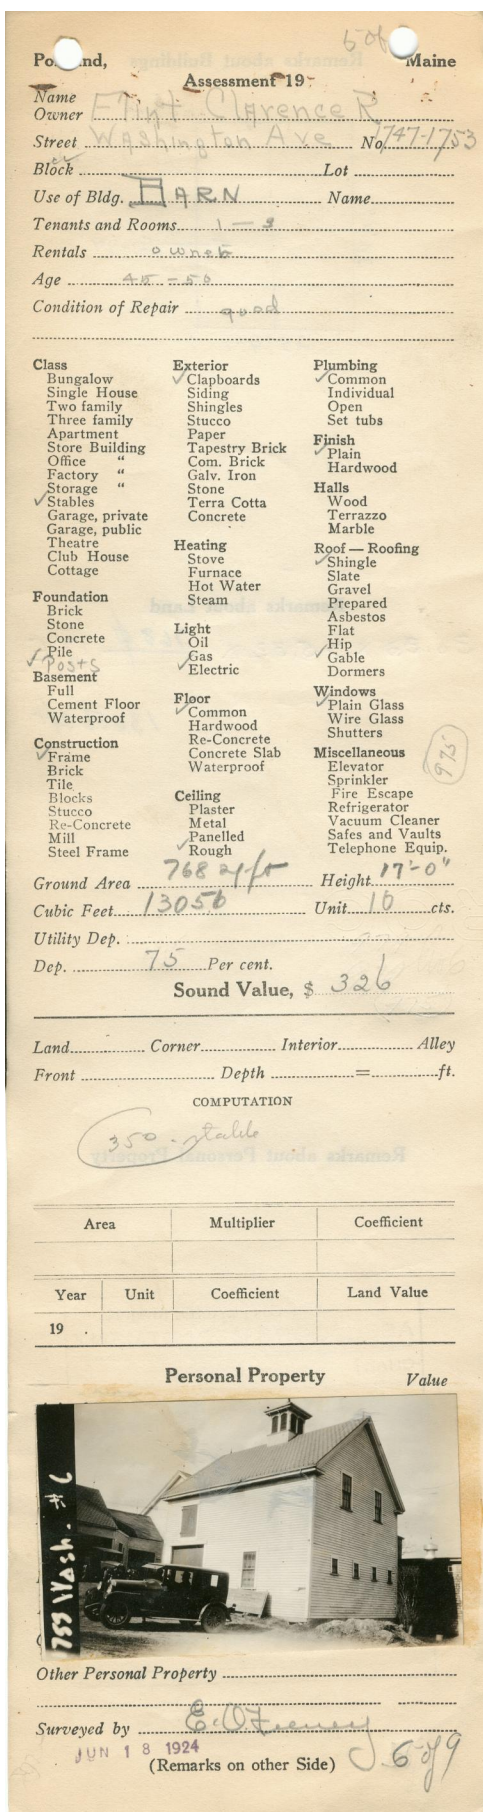 6 of
Portland, Maine
Assessment 19
Name
Owner Flint Clarence R
Street Washington Ave No 1747-1753
Block Lot
Use of Bldg. BARN Name
Tenants and Rooms 1 - 3
Rentals owner
Age 45 - 50
Condition of Repair good
Class
Bungalow
Single House
Two family
Three family
Apartment
Store Building
Office "
Factory "
Storage "
✓ Stables
Garage, private
Garage, public
Theatre
Club House
Cottage
Foundation
Brick
Stone
Concrete
Pile
✓ Posts
Basement
Full
Cement Floor
Waterproof
Construction
✓ Frame
Brick
Tile
Blocks
Stucco
Re-Concrete
Mill
Steel Frame
Exterior
✓ Clapboards
Siding
Shingles
Stucco
Paper
Tapestry Brick
Com. Brick
Galv. Iron
Stone
Terra Cotta
Concrete
Heating
Stove
Furnace
Hot Water
Steam
Light
Oil
Gas
✓ Electric
Floor
✓ Common
Hardwood
Re-Concrete
Concrete Slab
Waterproof
Ceiling
Plaster
Metal
Panelled
✓ Rough
Plumbing
✓ Common
Individual
Open
Set tubs
Finish
✓ Plain
Hardwood
Halls
Wood
Terrazzo
Marble
Roof — Roofing
✓ Shingle
Slate
Gravel
Prepared
Asbestos
Flat
Hip
✓ Gable
Dormers
Windows
✓ Plain Glass
Wire Glass
Shutters
Miscellaneous
Elevator
Sprinkler
Fire Escape
Refrigerator
Vacuum Cleaner
Safes and Vaults
Telephone Equip.
975
Ground Area 768 sq ft Height 17'-0"
Cubic Feet 13056 Unit 10 cts.
Utility Dep.
Dep. 75 Per cent.
Sound Value, $ 326
Land Corner Interior Alley
Front Depth = ft.
COMPUTATION
350 - stable
Area Multiplier Coefficient
Year Unit Coefficient Land Value
19
Personal Property Value
755 Wash. #6
Other Personal Property
Surveyed by E. O. Feeney
JUN 18 1924
(Remarks on other Side) 6 of 9